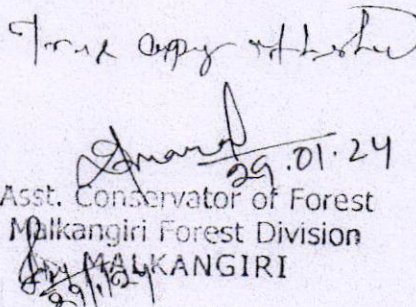 True copy attested
29.01.24
Asst. Conservator of Forest
Malkangiri Forest Division
MALKANGIRI
29/1/24